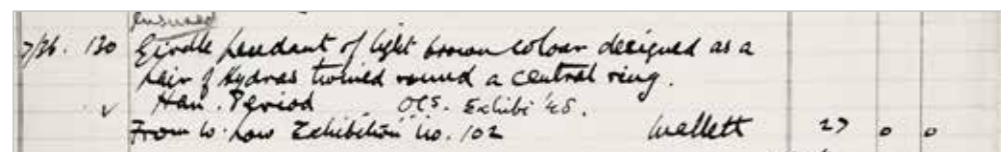 insured
7/36. 130 Girdle pendant of light brown colour designed as a
pair of hydras twined round a central ring.
✓ Han. Period OCS. Exhibi '48.
From Exhibition No. 102 27 0 0